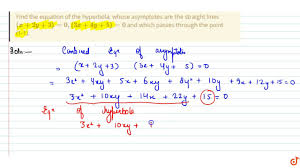 Find the equation of the hyperbola whose asymptotes are the straight lines
(x + 2y + 3) = 0, (3x + 4y + 5) = 0 and which passes through the point
(1,-1).
Soln:- Combined Eqn of asymptotes
(x + 2y + 3) (3x + 4y + 5) = 0
3x² + 4xy + 5x + 6xy + 8y² + 10y + 9x + 12y + 15 = 0
3x² + 10xy + 14x + 22y + 15 = 0
Eqn of hyperbola
3x² + 10xy +